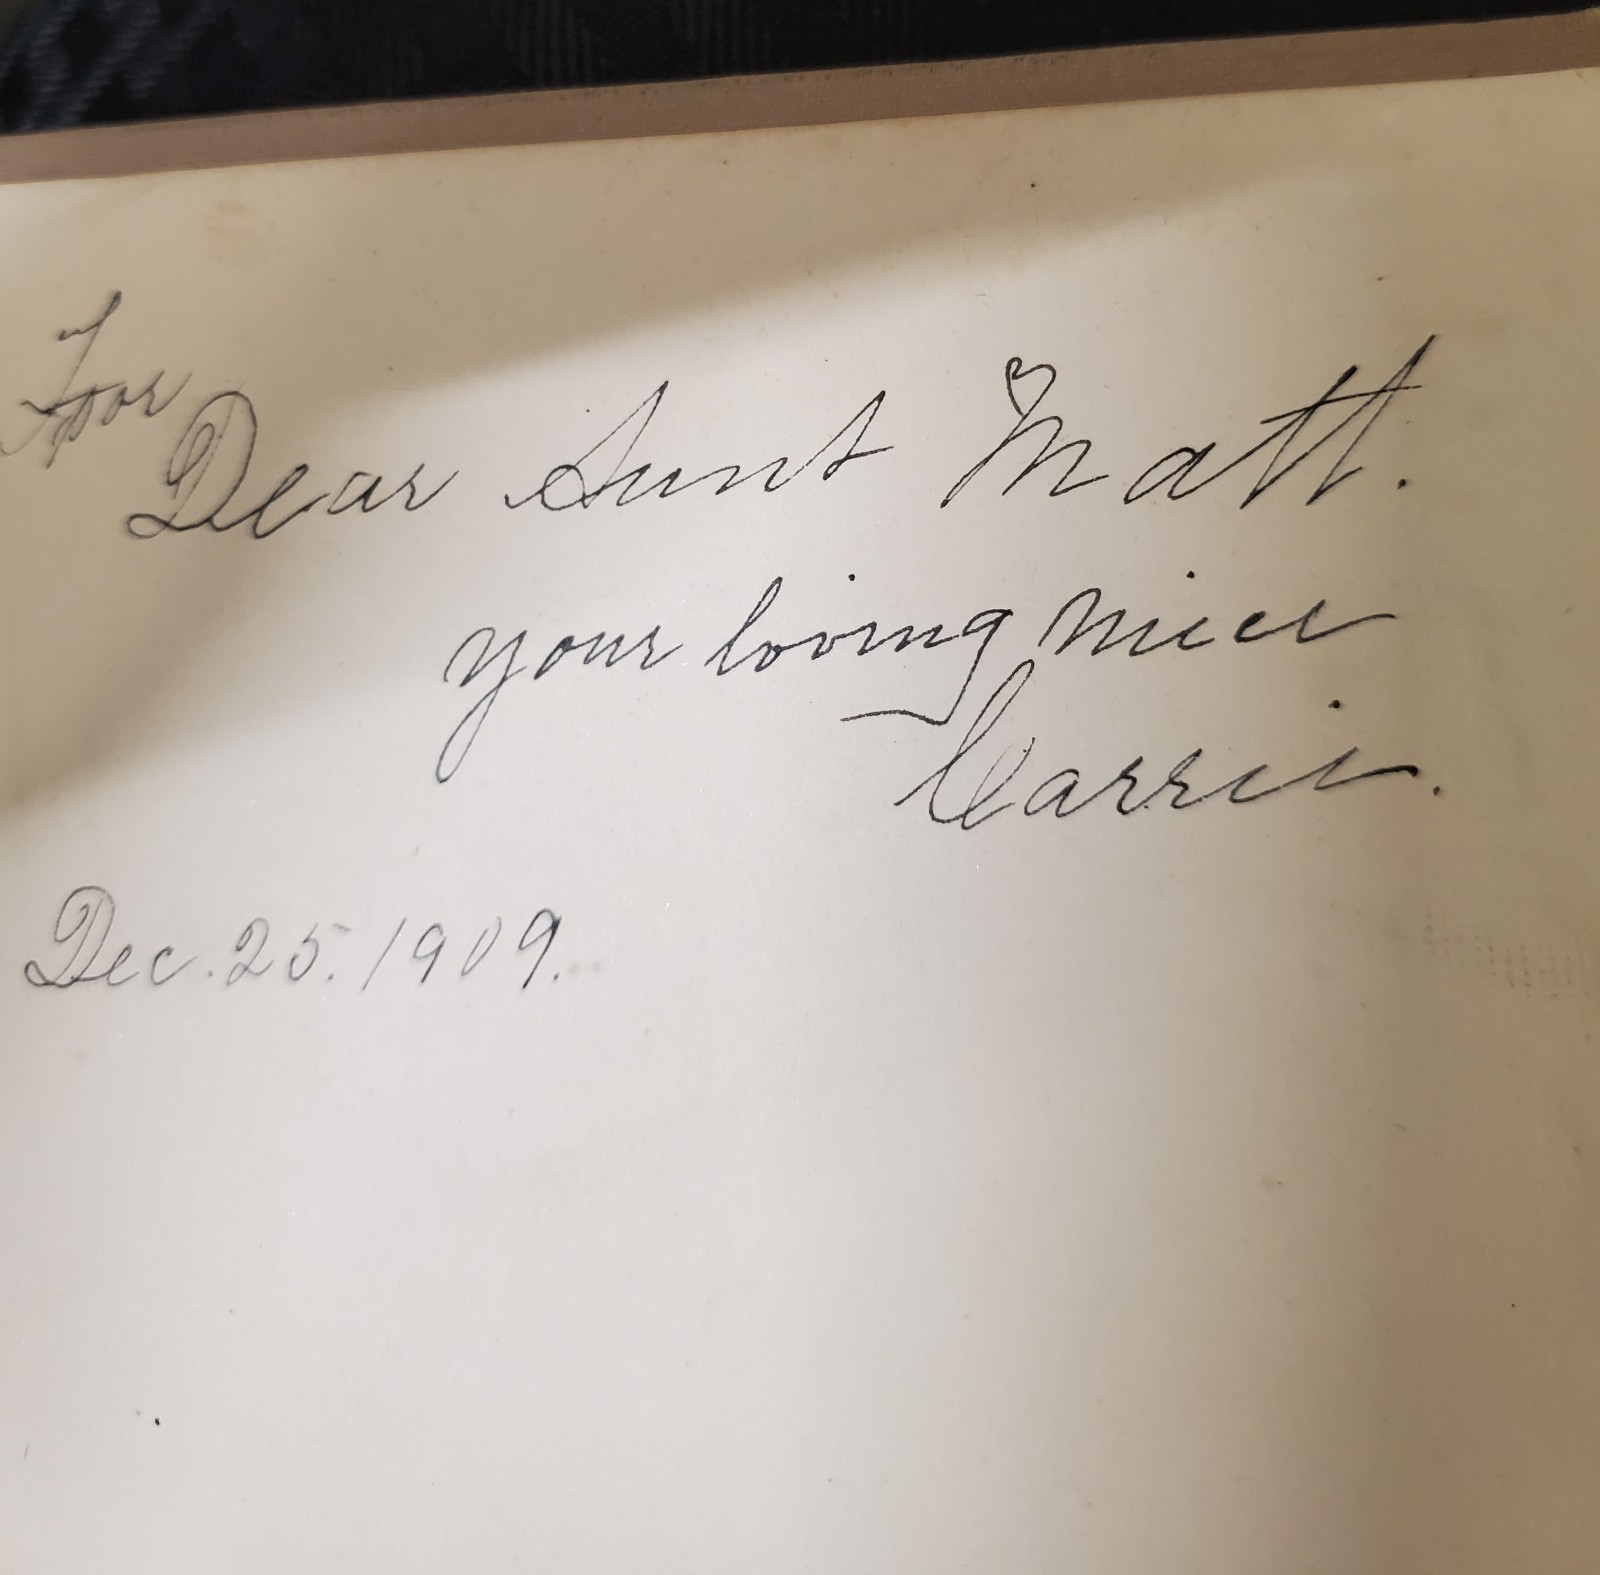 For
Dear Aunt Matt.
your loving niece
Carrie.
Dec. 25. 1909.